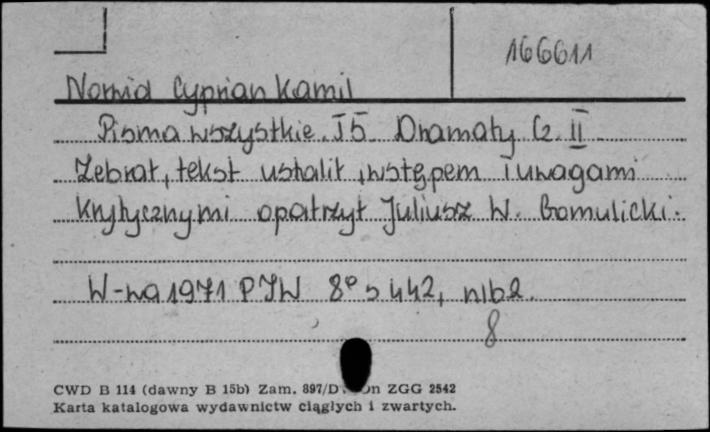 166611
Norwid Cyprian Kamil
Pisma wszystkie. T5. Dramaty Cz. II
Zebrał, tekst ustalił, wstępem i uwagami
krytycznymi opatrzył Juliusz W. Gomulicki.
W-wa 1971 PIW 8° s 442, nlb 2.
8
CWD B 114 (dawny B 15b) Zam. 897/D ZGG 2542
Karta katalogowa wydawnictw ciągłych i zwartych.